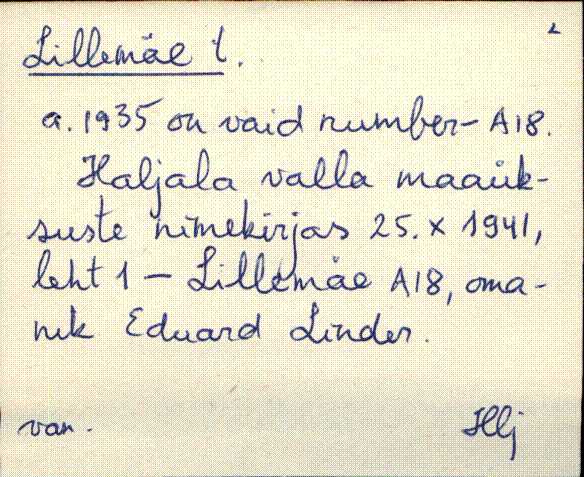 2
Lillemäe t.
a. 1935 on vaid number - A18.
Haljala valla maaük-
suste nimekirjas 25. X 1941,
leht 1 - Lillemäe A18, oma-
nik Eduard Linder.
van.
Hlj